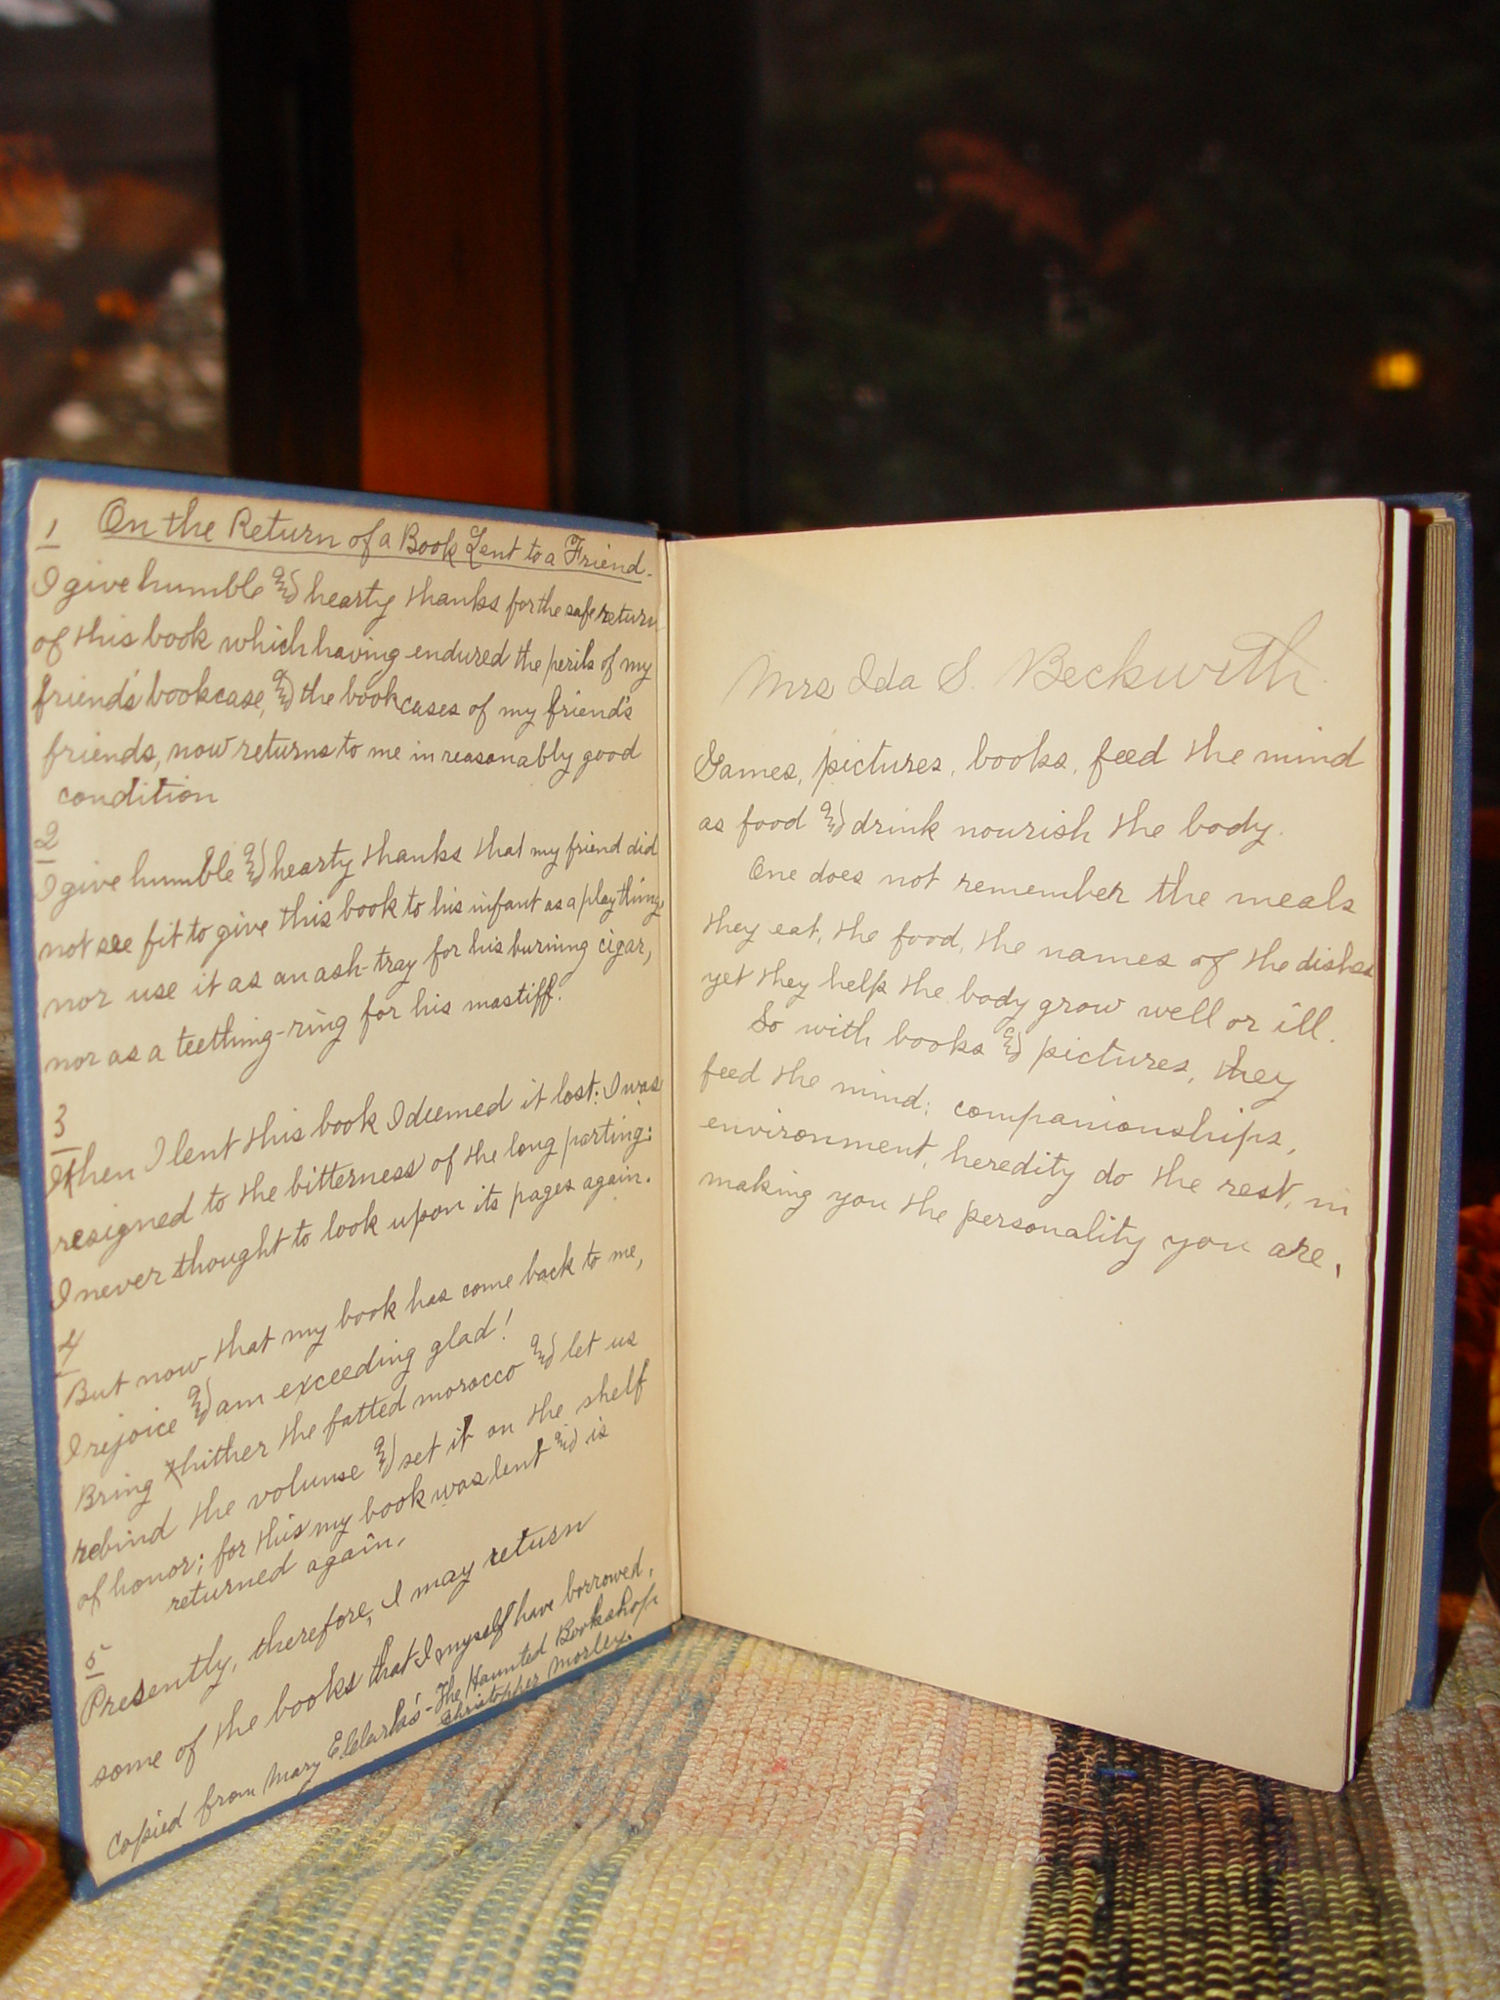 1 On the Return of a Book Lent to a Friend.
I give humble & hearty thanks for the safe return
of this book which having endured the perils of my
friend's bookcase, & the bookcases of my friend's
friends, now returns to me in reasonably good
condition
2
I give humble & hearty thanks that my friend did
not see fit to give this book to his infant as a plaything,
nor use it as an ash-tray for his burning cigar,
nor as a teething-ring for his mastiff.
3
When I lent this book I deemed it lost: I was
resigned to the bitterness of the long parting:
I never thought to look upon its pages again.
4
But now that my book has come back to me,
I rejoice & am exceeding glad!
Bring hither the fatted morocco & let us
rebind the volume & set it on the shelf
of honor; for this my book was lent & is
returned again.
5
Presently, therefore, I may return
some of the books that I myself have borrowed.
Copied from Mary - The Haunted Bookshop
Christopher Morley.
Mrs Ida S. Beckwith.
Games, pictures, books, feed the mind
as food & drink nourish the body.
One does not remember the meals
they eat, the food, the names of the dishes
yet they help the body grow well or ill.
So with books & pictures, they
feed the mind; companionships,
environment, heredity do the rest, in
making you the personality you are.